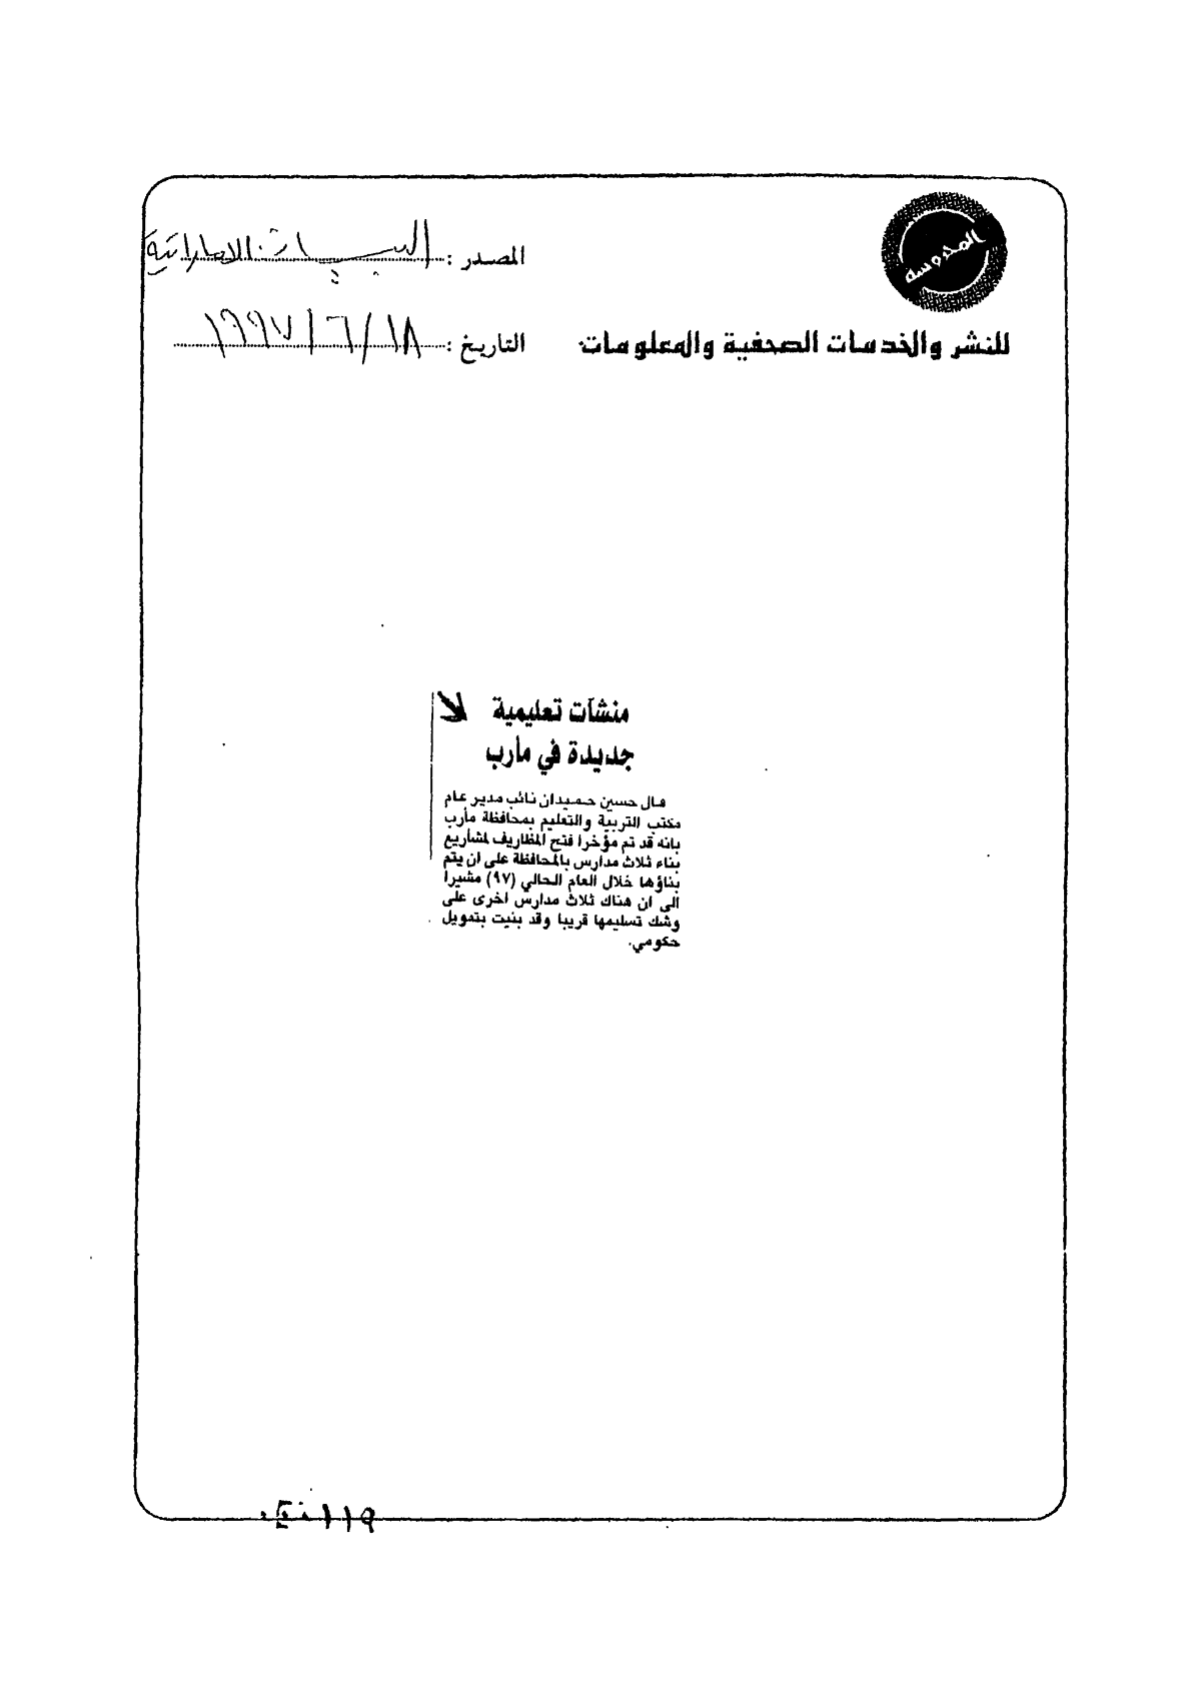 المحروسة
للنشر والخدمات الصحفية والمعلومات
المصدر : البيان الاماراتية
التاريخ : ١٨/٦/١٩٩٧
منشآت تعليمية
جديدة في مأرب
قال حسين حميدان نائب مدير عام
مكتب التربية والتعليم بمحافظة مأرب
بانه قد تم مؤخرا فتح المظاريف لمشاريع
بناء ثلاث مدارس بالمحافظة على ان يتم
بناؤها خلال العام الحالي (٩٧) مشيرا
الى ان هناك ثلاث مدارس اخرى على
وشك تسليمها قريبا وقد بنيت بتمويل
حكومي.